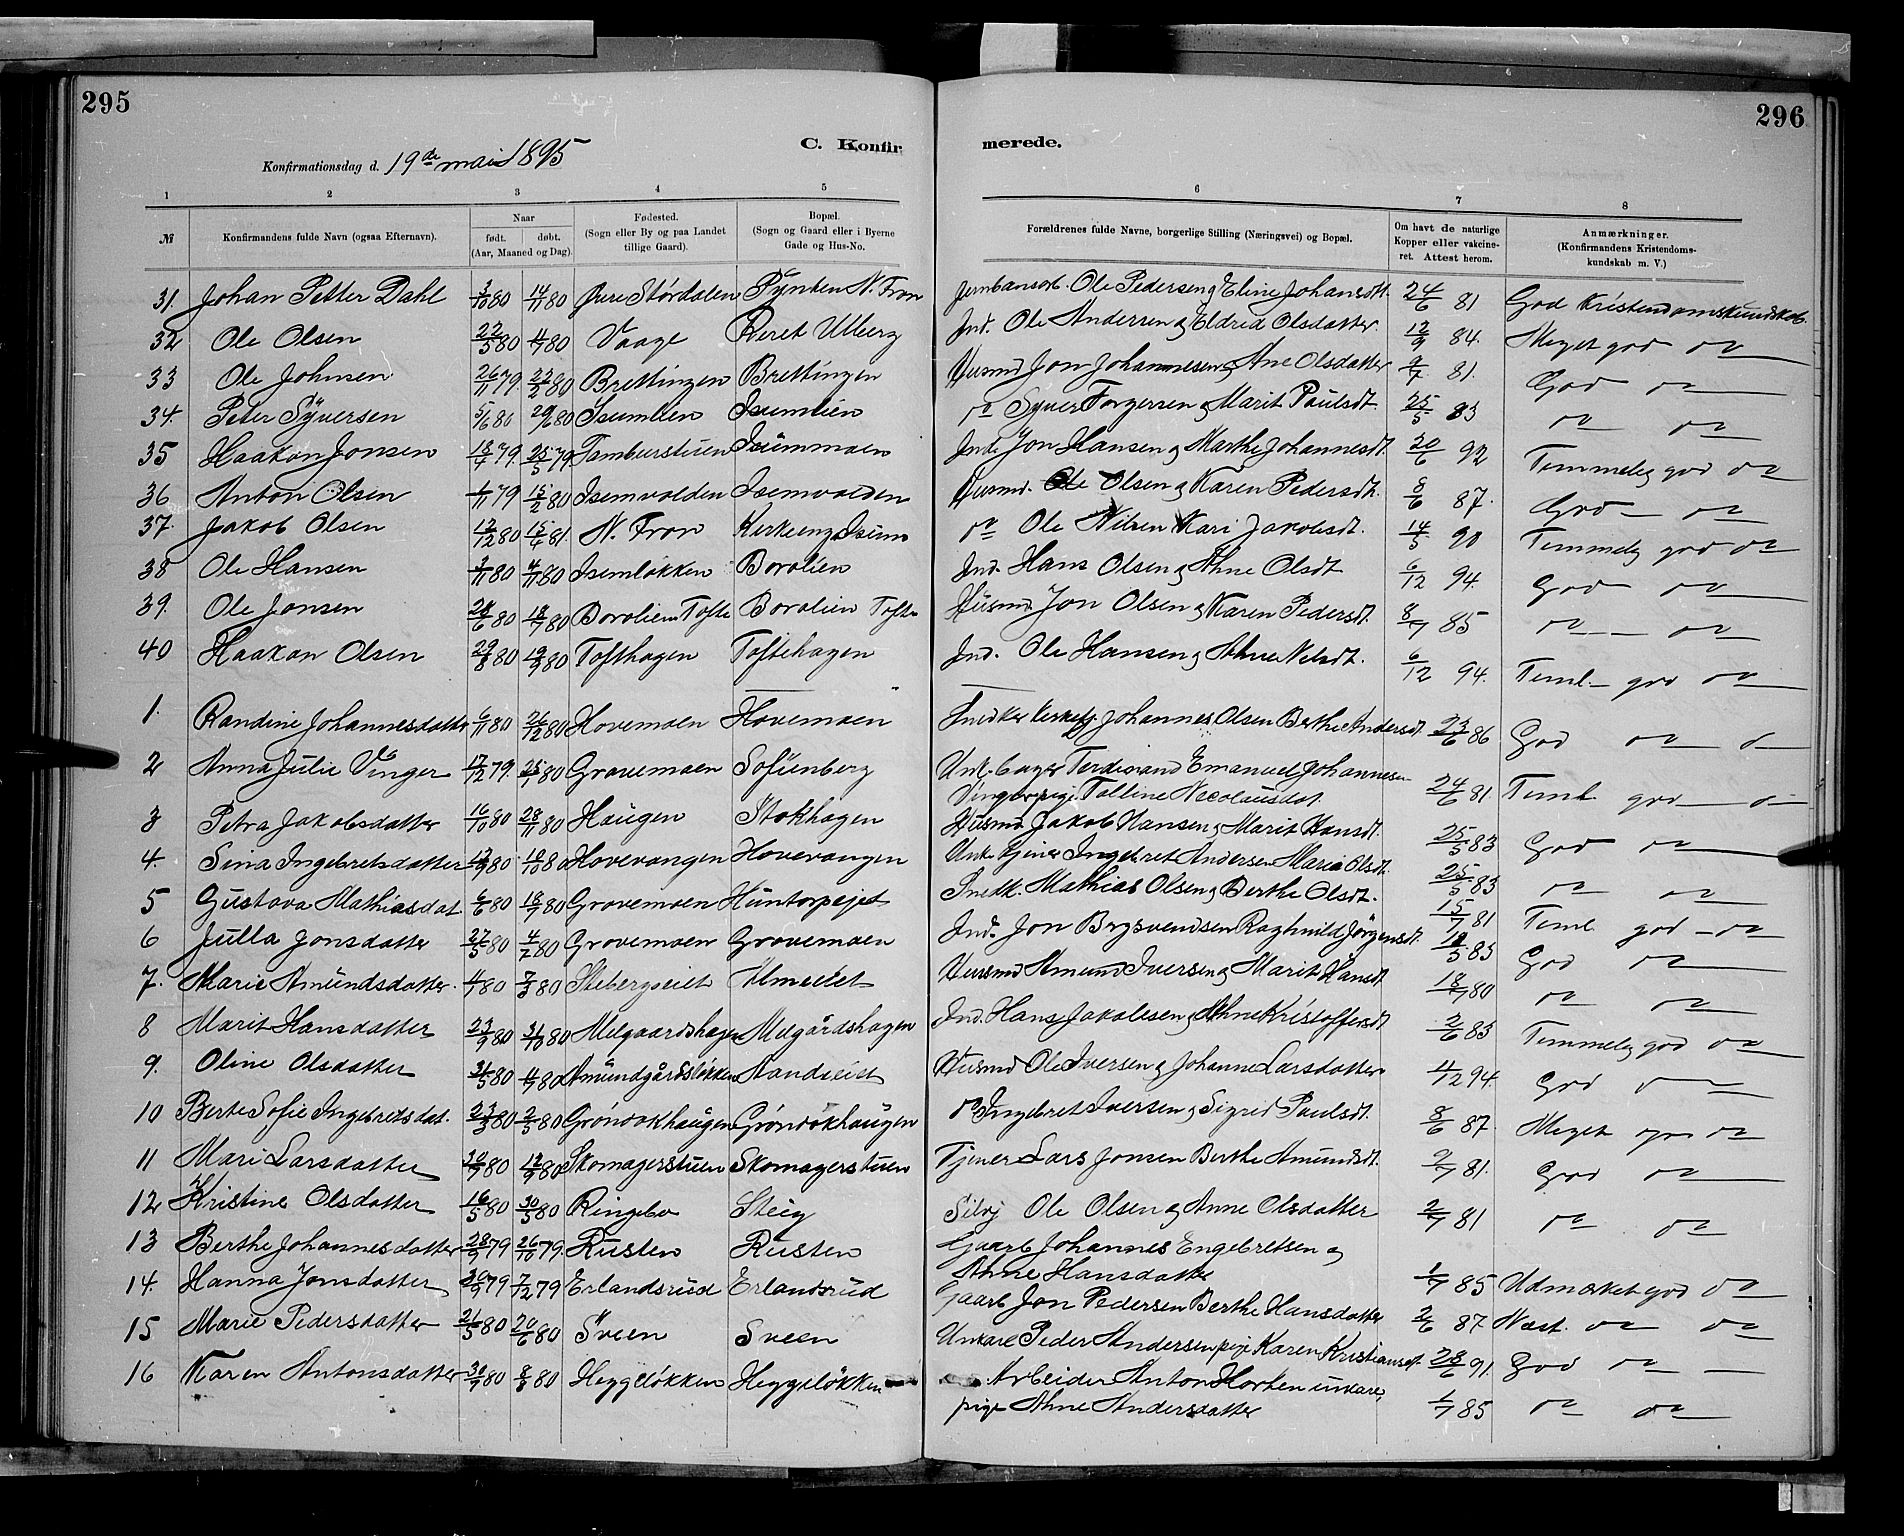 295
296
C. Konfir
merede.
Konfirmationsdag d. 19de mai 1895
1 2 3 4 5 6 7 8
№ Konfirmandens fulde Navn (ogsaa Efternavn). Naar født. døbt. (Aar, Maaned og Dag). Fødested. (Sogn eller By og paa Landet tillige Gaard). Bopæl. (Sogn og Gaard eller i Byerne Gade og Hus-No. Forældrenes fulde Navne, borgerlige Stilling (Næringsvei) og Bopæl. Om havt de naturlige Kopper eller vakcineret. Attest herom. Anmærkninger. (Konfirmandens Kristendomskundskab m. V.)
31. Johan Petter Dahl 3/10 80 14/11 80 Øvre Stördalen Pynten N. Fron Jernbanearb. Ole Pedersen og Eline Johansdt. 24/6 81 God Kristendomskundskab.
32 Ole Olsen 22/5 80 4/7 80 Vaage Ole Andersen og Eldrid Olsdatter 12/9 84. Meget god do
33 Ole Johnsen 26/11 79 22/2 80 Brettingen Brettingen Husmd Jon Johannesen og Ane Olsdatter 2/7 81. God do
34. Peter Syversen 5/6 80 29/6 80 Isumlien Isumlien do Syver Torgersen og Marit Paulsdt. 25/5 83 do do
35 Haakon Jonsen 18/4 79. 25/5 79 Tamburstuen Isummoen Ind. Jon Hansen og Marthe Johannesdt. 20/6 92 Temmelig god do
36 Anton Olsen 1/11 79 15/2 80 Isemvolden Isemvolden Husmd. Ole Olsen og Karen Pedersdt. 8/6 87. God do
37. Jakob Olsen 12/12 80 15/4 81. N. Fron Kirkeeng Isum do Ole Nilsen Kari Jakobsdt. 14/5 90 Temmelig god do
38 Ole Hansen 3/11 80 4/11 80 Isemlökken Borolien Ind. Hans Olsen og Ahne Olsdt 6/12 94. God do
39. Ole Jonsen 24/6 80 18/7 80 Borolien Tofte Borolien Tofte Husmd. Jon Olsen og Karen Pedersdt. 8/7 85 do do
40 Haakon Olsen 29/8 80 19/9 80 Tofthagen Toftehagen Ind. Ole Hansen og Ahne Nelsdt. 6/12 94. Teml. god do
1. Randine Johannesdatter 6/11 80 26/12 80 Hovemoen Hovemoen Snedker Johannes Olsen Berthe Andersdt. 23/6 86 God do
2 Anna Julie Vinger 17/12 79. 25/1 80 Grovemoen Sofienberg Unk. bager Ferdinand Emanuel Johannesen
Vinger pige Talline Necolausdat. 24/6 81. Teml god
3 Petra Jakobsdatter 16/10 80 28/11 80 Haugen Stokhagen Husmd Jakob Hansen og Marit Hansdt. 25/5 83 God do
4. Sina Ingebretsdatter 80 10/10 80 Hovevangen Hovevangen Unk. tjener Ingebret Andersen Marie Olsdt. 25/5 83 do do
5 Gustava Mathiasdat 6/6 80 18/7 80 Grovemoen Huntorpejet Snedk. Mathias Olsen og Berthe Olsdt. 15/7 81 Teml god do
6 Julla Jonsdatter 27/5 80 4/7 80 Grovemoen Grovemoen Ind. Jon Brysvendsen Raghnild Jörgensdt. 83 God do
7. Marie Amundsdatter. 4/1 80 7/3 80 Stebergseiet Almeiet Husmd Amund Iversen og Marit Hansdt 18/7 80 do do
8 Marit Hansdatter 23/9 80 31/10 80 Melgaardshagen Melgårdshagen Ind. Hans Jakobsen og Ahne Kristoffersdt 2/6 83 Temmelig god do
9. Oline Olsdatter 31/5 80 4/7 80 Amundgårdslökken Sandseiet Husmd Ole Iversen og Johanne Larsdatter 4/12 94. God do
10 Berte Sofie Ingebretsdat. 23/3 80 2/5 80 Gröndokhaugen Gröndokhaugen do Ingebret Iversen og Sigrid Paulsdt. 8/6 87. Meget god do
11 Mari Larsdatter 80 12/9 80 Skomagerstuen Skomagerstuen Tjener Lars Jonsen Berthe Amundsdt. 2/7 81. God do
12 Kristine Olsdatter 16/5 80 30/5 80 Ringebo Steig Selvej Ole Olsen og Anne Olsdatter 2/7 81 do do
13 Berthe Johannesdatter 28/9 79 26/10 79 Rusten Rusten Gaarb Johannes Engebretsen og
Ahne Hansdatter 1/7 85 Udmærket god do
14. Hanna Jonsdatter 30/9 79 7/12 79 Erlandsrud Erlandsrud Gaarb Jon Pedersen Berthe Hansdatter 2/6 87 Næst. do do
15 Marie Pedersdatter 21/5 80 20/6 80 Sveen Sveen Unkarl Peder Andersen pige Karen Kristiansdt 28/6 91. God do
16 Karen Antonsdatter 80 80 Heggelökken Heggelökken Arbeider Anton Horken unkarl,
pige Ahne Andersdatter 1/7 85 do do